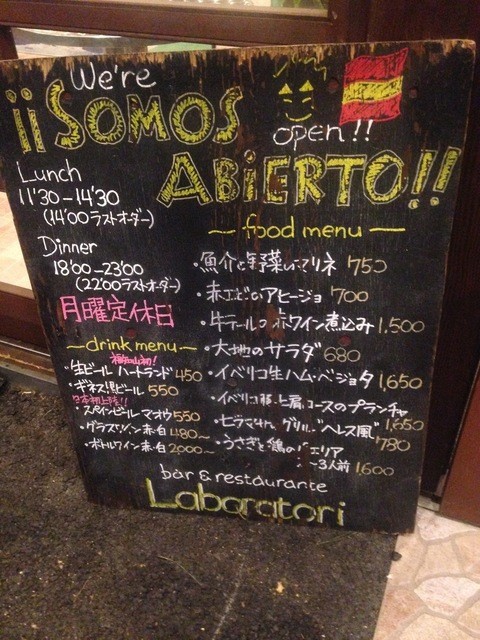 We're
¡¡SOMOS
open!!
ABiERTO!!
Lunch
11'30-14'30
(14'00ラストオーダー)
Dinner
18'00-23'00
(22'00ラストオーダー)
月曜定休日
drink menu
生ビール ハートランド 450
ギネス黒ビール 550
日本初上陸!!
スペインビール マオウ 550
グラスワイン 赤・白 480~
ボトルワイン 赤・白 2000~
food menu
・魚介と野菜のマリネ 750
・赤エビのアヒージョ 700
・牛テールの赤ワイン煮込み 1,500
・大地のサラダ 680
・イベリコ生ハム・ベジョタ 1,650
・イベリコ豚 上肩ロースのプランチャ 1,650
グリル "ヘレス風" 780
・うさぎと鶏のパエリア
2~3人前 1,600
bar & restaurante
Laboratori